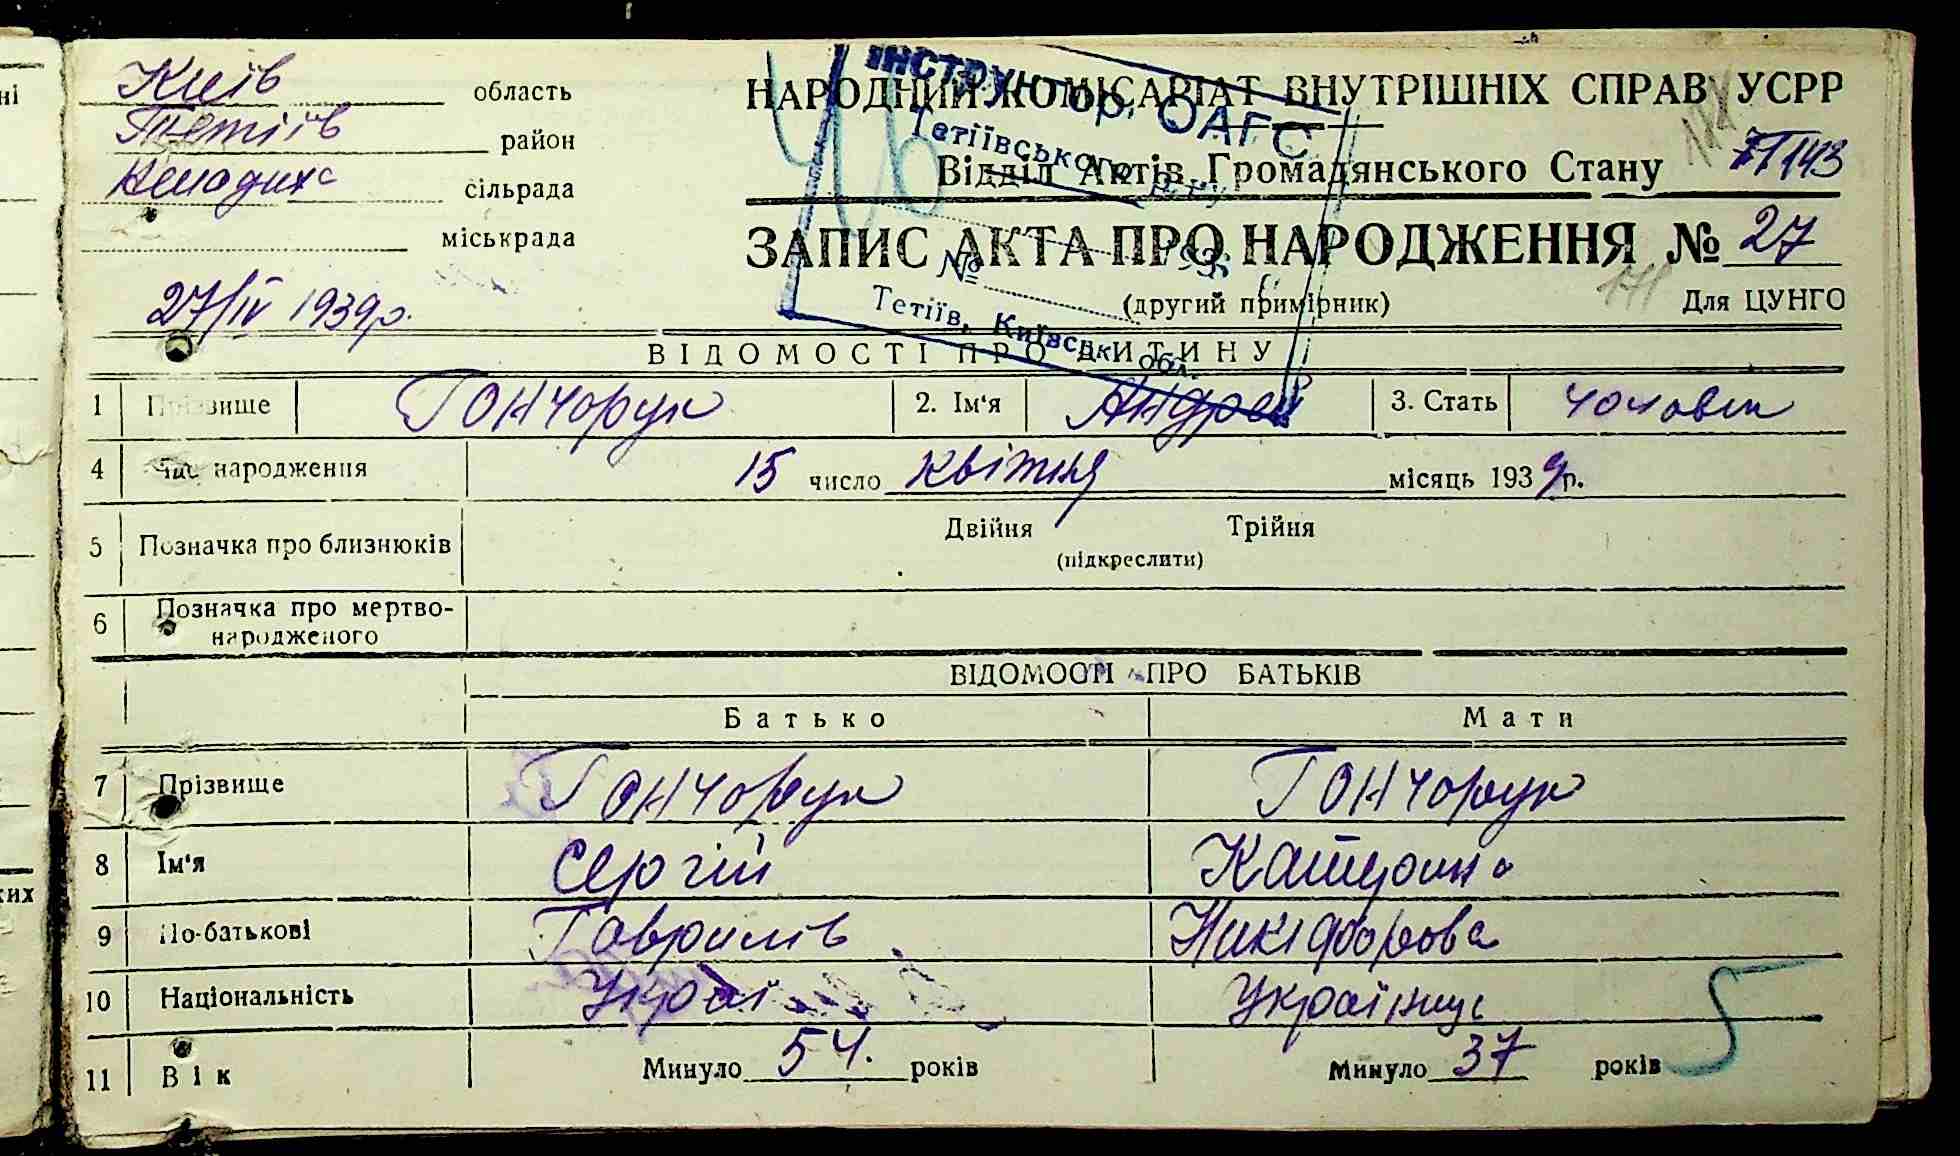 Київ область
Тетіїв район
сільрада
міськрада
27/IV 1939р.
НАРОДНИЙ КОМІСАРІАТ ВНУТРІШНІХ СПРАВ УСРР
Відділ Актів Громадянського Стану
ЗАПИС АКТА ПРО НАРОДЖЕННЯ № 27
(другий примірник) Для ЦУНГО
ІНСТРУКТОР ОАГС
Тетіївського
№ 193 р.
Тетіїв, Київськ. обл.
ВІДОМОСТІ ПРО ДИТИНУ
1 Прізвище Гончорук 2. Ім'я Андрей 3. Стать
4 Час народження 15 число квітня місяць 1939р.
5 Позначка про близнюків Двійня Трійня
(підкреслити)
6 Позначка про мертво-
народженого
ВІДОМОСТІ ПРО БАТЬКІВ
Батько Мати
7 Прізвище Гончорук Гончорук
8 Ім'я Сергій Катерина
9 По-батькові Гаврилів Никіфорова
10 Національність Украї Українця
11 Вік Минуло 54. років Минуло 37 років
5
ких